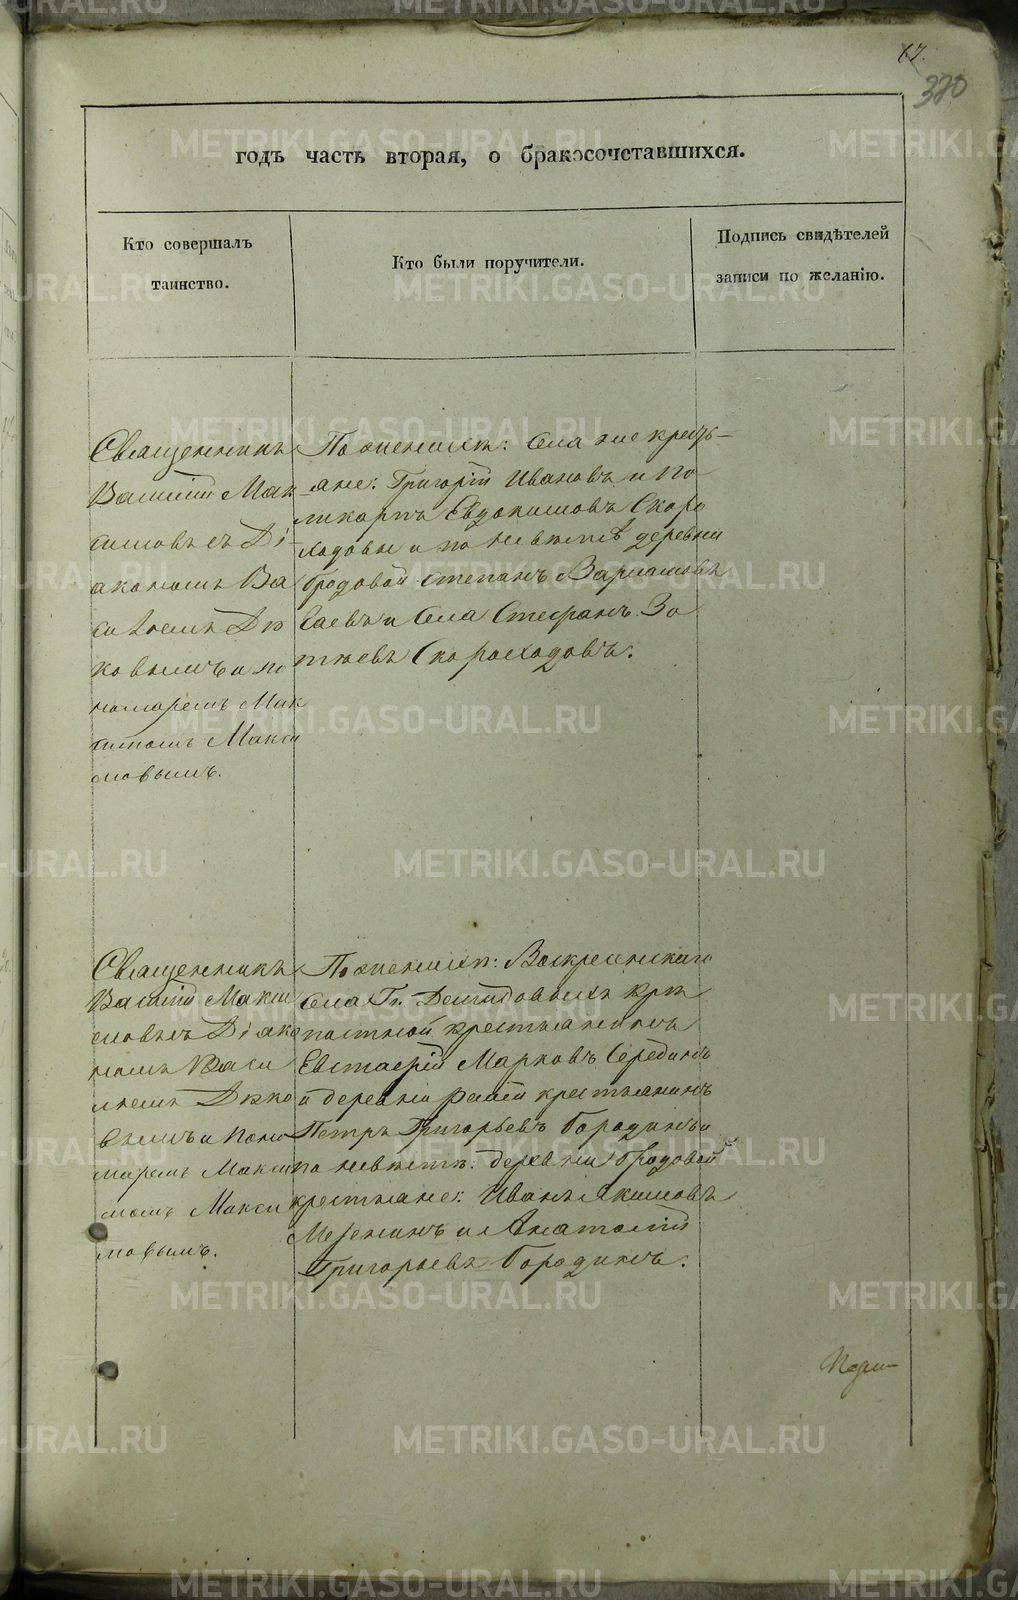 67.
320
годъ часть вторая, о бракосочетавшихся.
Кто совершалъ
таинство.
Кто были поручители.
Подпись свидѣтелей
записи по желанію.
Священникъ
Василій Мак
симовъ съ Ді
акономъ Ва
силіемъ Дю
ковымъ и по
номаремъ Мак
симомъ Макси
мовымъ.
По женихѣ: Села сие кресть-
яне: Григорій Ивановъ и По
ликарпъ Евдокимовъ Скоро
ходовы и по невѣстѣ деревни
Бродовой Степанъ Варламовъ
Саевъ и Села Стефанъ Зо
тѣевъ Скороходовъ.
Священникъ
Василій Макси
мовъ съ Діако
номъ Васи
ліемъ Дюко
вымъ и Поно
маремъ Макси
момъ Макси
мовымъ.
По женихѣ: Воскресенскаго
Села Гг. Демидовыхъ крѣ
постной крестьянинъ
Евстафій Марковъ Серединъ
и деревни крестьянинъ
Петръ Григорьевъ Бородинъ и
по невѣстѣ: деревни Бродовой
крестьяне: Иванъ Якимовъ
Мезенинъ и Анатолій
Григорьевъ Бородинъ.
METRIKI.GASO-URAL.RU